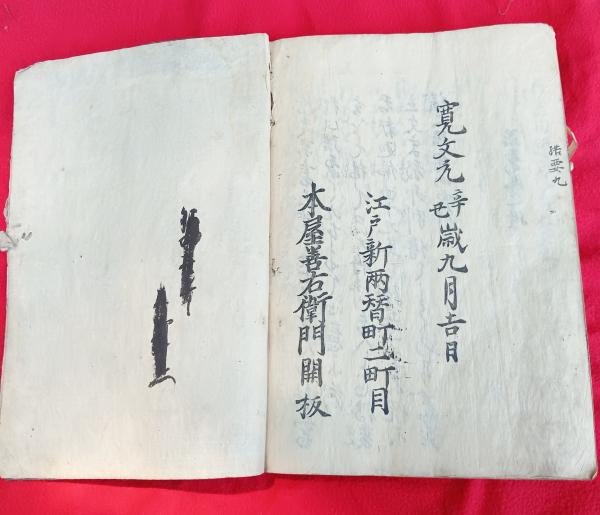 寛文元辛丑歳九月吉日
江戸新両替町二町目
本屋善右衛門開板